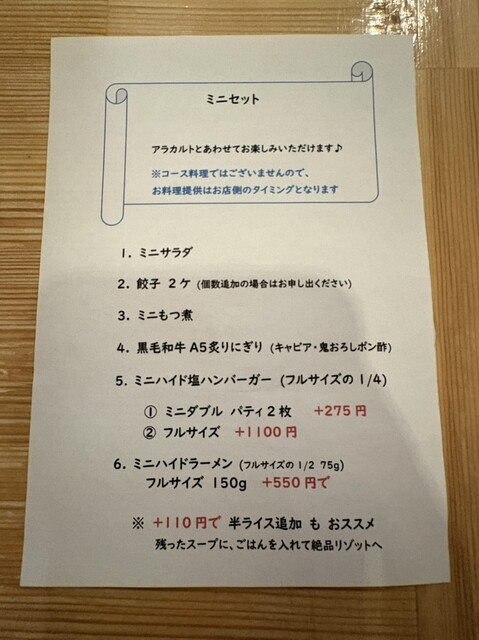 ミニセット
アラカルトとあわせてお楽しみいただけます♪
※コース料理ではございませんので、
お料理提供はお店側のタイミングとなります
1. ミニサラダ
2. 餃子 2ケ (個数追加の場合はお申し出ください)
3. ミニもつ煮
4. 黒毛和牛 A5炙りにぎり (キャビア・鬼おろしポン酢)
5. ミニハイド塩ハンバーガー (フルサイズの 1/4)
① ミニダブル パティ2枚 +275円
② フルサイズ +1100円
6. ミニハイドラーメン (フルサイズの 1/2 75g)
フルサイズ 150g +550円で
※ +110円で 半ライス追加 も おススメ
残ったスープに、ごはんを入れて絶品リゾットへ